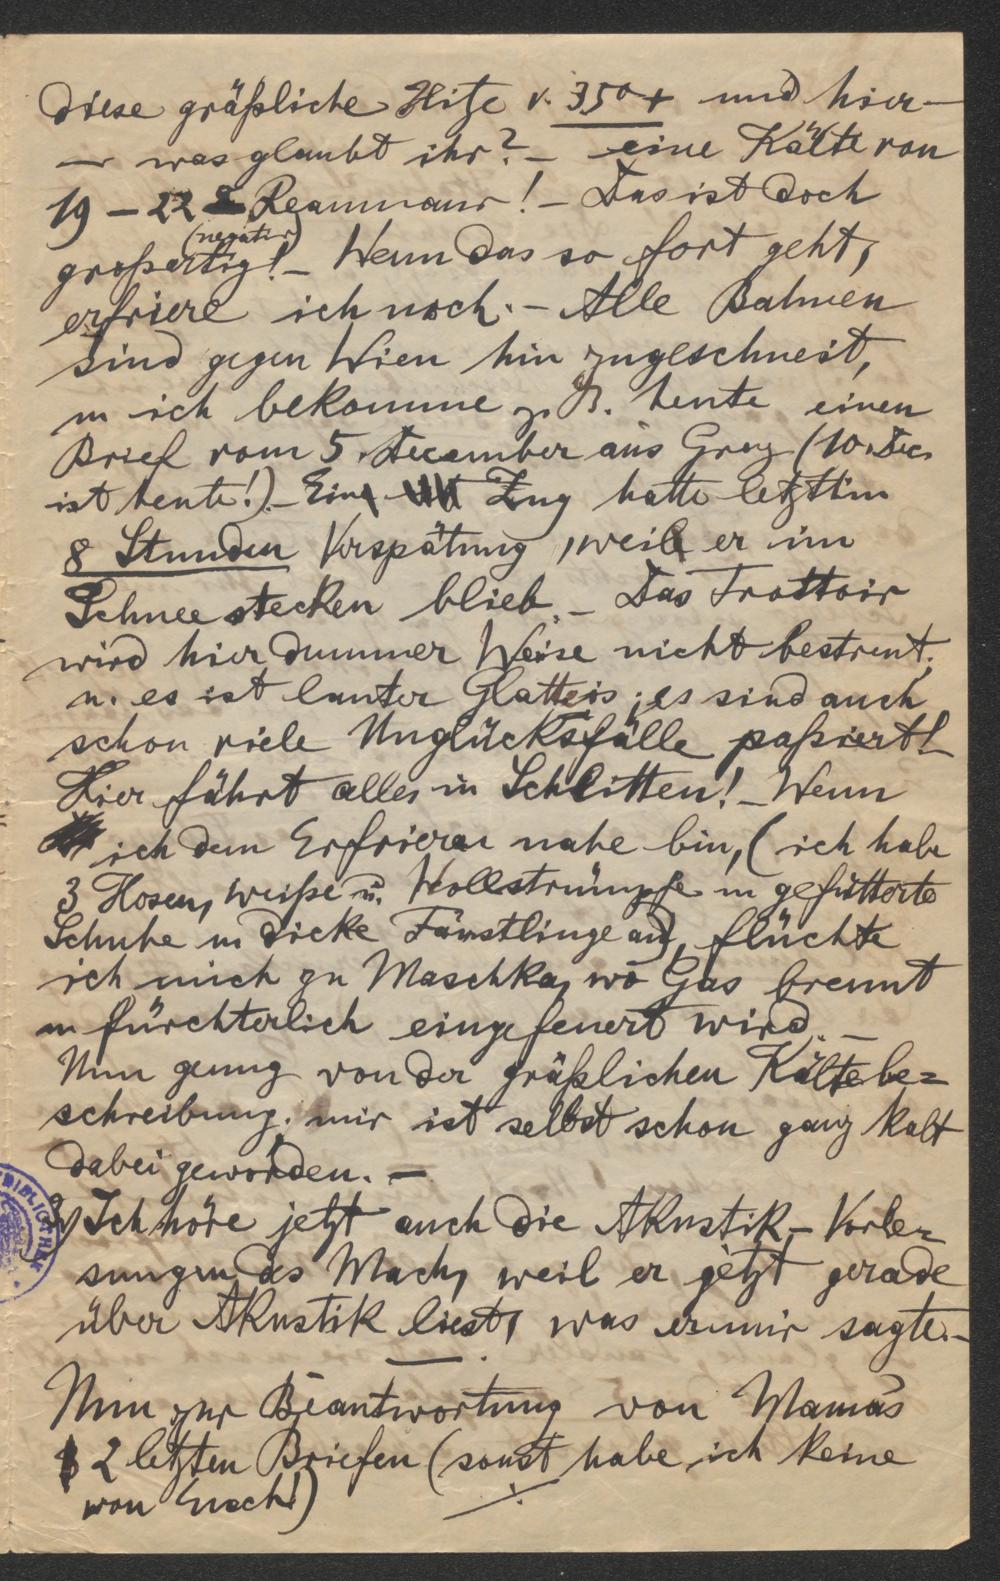 diese gräßliche Hitze v. 35°+ und hier –
– was glaubt ihr? – eine Kälte von
19 – 22 Reaumaur! – Das ist doch
(negativ)
großartig! – Wenn das so fort geht,
erfriere ich noch. – Alle Bahnen
sind gegen Wien hin zugeschneit,
u ich bekomme z. B. heute einen
Brief vom 5. December aus Graz (10. Dec.
ist heute!) – Ein Zug hatte letzthin
8 Stunden Verspätung, weil er im
Schnee stecken blieb. – Das Trottoir
wird hier dummer Weise nicht bestreut,
u. es ist lauter Glatteis; es sind auch
schon viele Unglücksfälle paßiert! –
Hier fährt alles in Schlitten! – Wenn
ich dem Erfrieren nahe bin, (ich habe
3 Hosen, weiße u. Wollstrümpfe u gefütterte
Schuhe u dicke Fäustlinge an), flüchte
ich mich zu Maschka, wo Gas brennt
u fürchterlich eingefeuert wird. –
Nun genug von der gräßlichen Kältebe=
schreibung; mir ist selbst schon ganz kalt
dabei geworden. –
Ich höre jetzt auch die Akustik – Vorle=
sungen des Mach, weil er jetzt gerade
über Akustik liest, was er mir sagte. –
Nun zur Beantwortung von Mamas
2 letzten Briefen (sonst habe ich keine
von Euch!)
BIBLIOTHEK